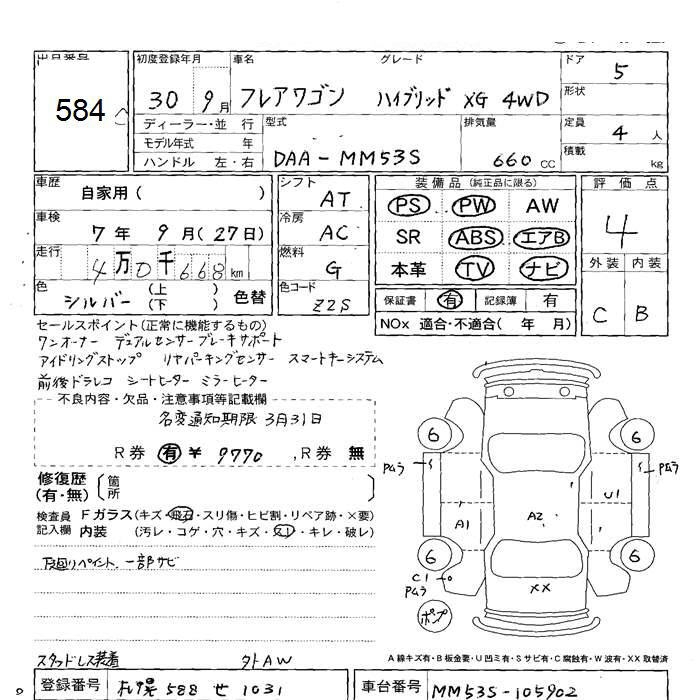 出品番号
584
初度登録年月
30 9月
車名
フレアワゴン
グレード
ハイブリッド XG 4WD
ドア
5
形状
ディーラー・並 行
モデル年式 年
ハンドル 左・右
型式
DAA-MM53S
排気量
660 CC
定員
4 人
積載
kg
車歴
自家用 ( )
車検
7年 9月(27日)
走行
4万0千668km
色
シルバー (上 )(下 ) 色替
シフト
AT
冷房
AC
燃料
G
色コード
Z2S
装備品(純正品に限る)
PS PW AW
SR ABS エアB
本革 TV ナビ
保証書 有 記録簿 有
NOx 適合・不適合( 年 月)
評価点
4
外装 内装
C B
セールスポイント(正常に機能するもの)
ワンオーナー デュアルセンサーブレーキサポート
アイドリングストップ リヤパーキングセンサー スマートキーシステム
前後ドラレコ シートヒーター ミラーヒーター
不良内容・欠品・注意事項等記載欄
名変通知期限 3月31日
R券 有 ¥ 9770 , R券 無
修復歴
(有・無)
箇所
検査員
記入欄
Fガラス(キズ・飛石・スリ傷・ヒビ割・リペア跡・×要)
内装 (汚レ・コゲ・穴・キズ・スレ・キレ・破レ)
下廻りペイント、一部サビ
スタッドレス装着 外AW
6 6
Pムラ Pムラ
U1
A1 A2
6 6
C1
Pムラ
XX
ポンプ
A 線キズ有・B 板金要・U 凹ミ有・S サビ有・C 腐蝕有・W 波有・XX 取替済
登録番号 札幌 588 せ 1031
車台番号 MM53S-105902